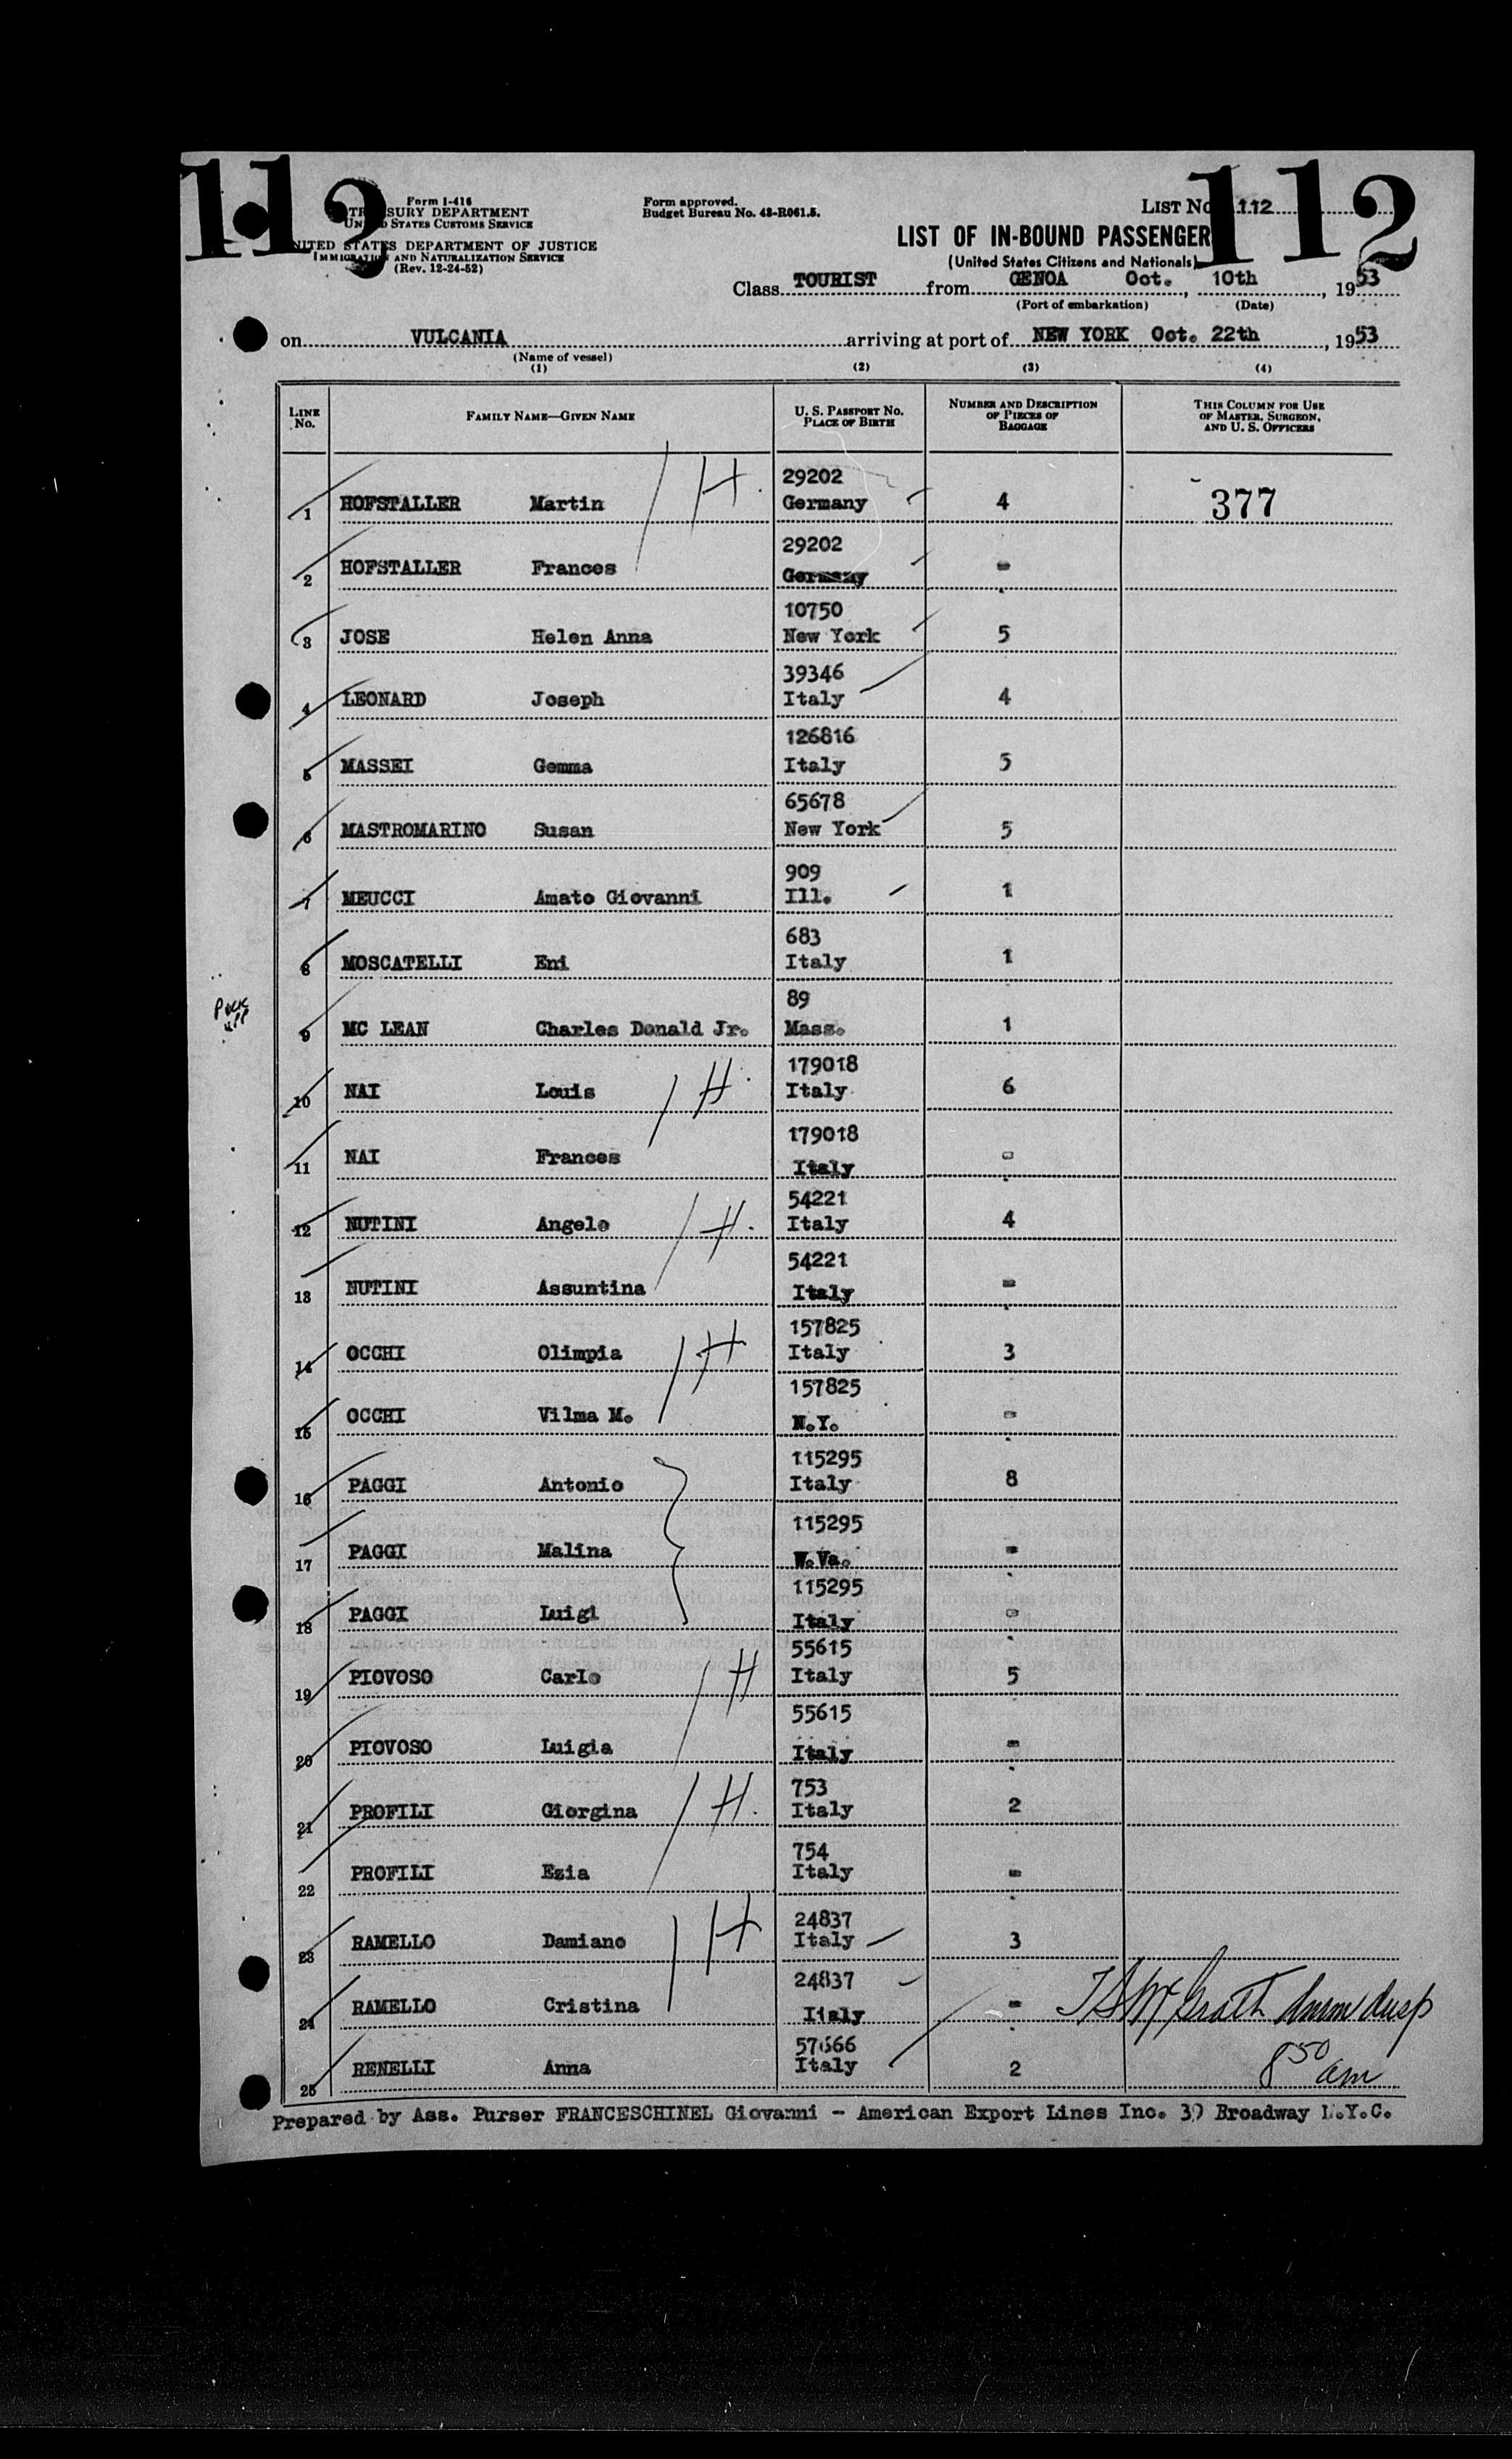 112
112
Form I-416
TREASURY DEPARTMENT
UNITED STATES CUSTOMS SERVICE
UNITED STATES DEPARTMENT OF JUSTICE
IMMIGRATION AND NATURALIZATION SERVICE
(Rev. 12-24-52)
Form approved.
Budget Bureau No. 43-R061.5.
LIST No. 112
LIST OF IN-BOUND PASSENGER
(United States Citizens and Nationals)
Class TOURIST from GENOA Oct. 10th, 1953
(Port of embarkation) (Date)
on VULCANIA arriving at port of NEW YORK Oct. 22th, 1953
(Name of vessel)
(1) (2) (3) (4)
LINE No. FAMILY NAME—GIVEN NAME U. S. PASSPORT No. PLACE OF BIRTH NUMBER AND DESCRIPTION OF PIECES OF BAGGAGE THIS COLUMN FOR USE OF MASTER, SURGEON, AND U. S. OFFICERS
1 HOFSTALLER Martin H. 29202 Germany 4 377
2 HOFSTALLER Frances 29202 Germany -
3 JOSE Helen Anna 10750 New York 5
4 LEONARD Joseph 39346 Italy 4
5 MASSEI Gemma 126816 Italy 5
6 MASTROMARINO Susan 65678 New York 5
7 MEUCCI Amato Giovanni 909 Ill. 1
8 MOSCATELLI Eni 683 Italy 1
9 MC LEAN Charles Donald Jr. 89 Mass. 1
10 NAI Louis H. 179018 Italy 6
11 NAI Frances 179018 Italy -
12 NUTINI Angelo H. 54221 Italy 4
13 NUTINI Assuntina 54221 Italy -
14 OCCHI Olimpia H 157825 Italy 3
15 OCCHI Vilma M. 157825 N.Y. -
16 PAGGI Antonio 115295 Italy 8
17 PAGGI Malina 115295 W.Va. -
18 PAGGI Luigi 115295 Italy -
19 PIOVOSO Carlo H 55615 Italy 5
20 PIOVOSO Luigia 55615 Italy -
21 PROFILI Giorgina H. 753 Italy 2
22 PROFILI Ezia 754 Italy -
23 RAMELLO Damiano H 24837 Italy 3
24 RAMELLO Cristina 24837 Italy -
25 RENELLI Anna 57666 Italy 2
8 50 am
Prepared by Ass. Purser FRANCESCHINEL Giovanni - American Export Lines Inc. 39 Broadway N.Y.C.